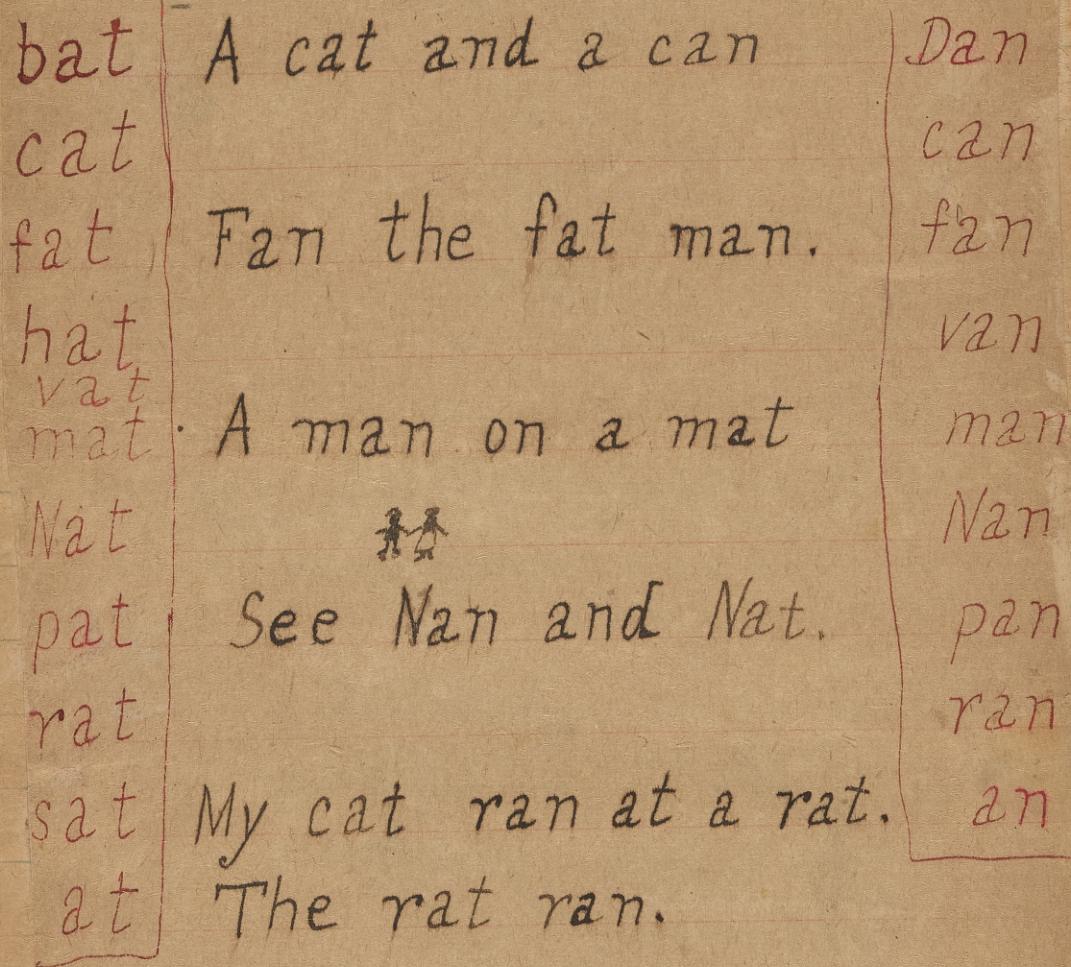 bat
cat
fat
hat
vat
mat
Nat
pat
rat
sat
at
A cat and a can
Fan the fat man.
A man on a mat
See Nan and Nat.
My cat ran at a rat.
The rat ran.
Dan
can
fan
van
man
Nan
pan
ran
an